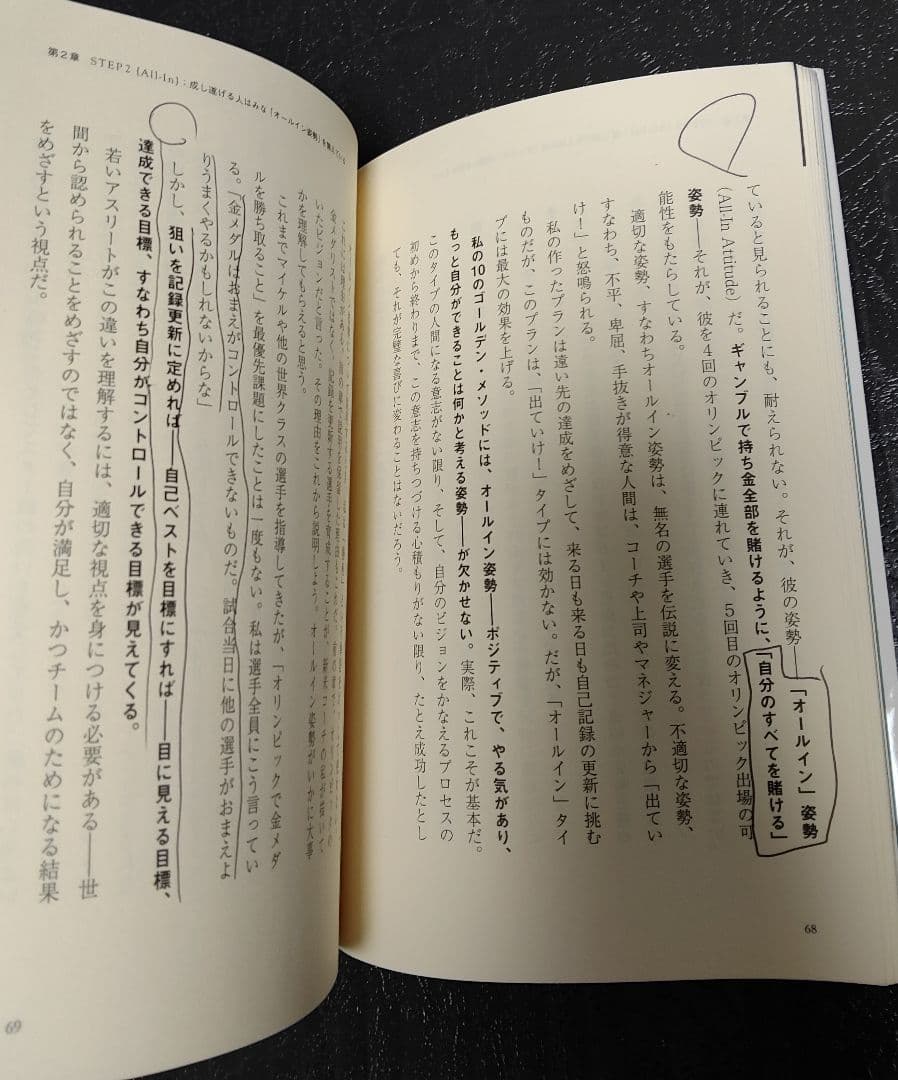 ていると見られることにも、耐えられない。それが、彼の姿勢――「オールイン」姿勢
(All-In Attitude) だ。ギャンブルで持ち金全部を賭けるように、「自分のすべてを賭ける」
姿勢――それが、彼を4回のオリンピックに連れていき、5回目のオリンピック出場の可
能性をもたらしている。
適切な姿勢、すなわちオールイン姿勢は、無名の選手を伝説に変える。不適切な姿勢、
すなわち、不平、卑屈、手抜きが得意な人間は、コーチや上司やマネジャーから「出てい
け!」と怒鳴られる。
私の作ったプランは遠い先の達成をめざして、来る日も来る日も自己記録の更新に挑む
ものだが、このプランは、「出ていけ!」タイプには効かない。だが、「オールイン」タイ
プには最大の効果を上げる。
私の10のゴールデン・メソッドには、オールイン姿勢――ポジティブで、やる気があり、
もっと自分ができることは何かと考える姿勢――が欠かせない。実際、これこそが基本だ。
このタイプの人間になる意志がない限り、そして、自分のビジョンをかなえるプロセスの
初めから終わりまで、この意志を持ちつづける心積もりがない限り、たとえ成功したとし
ても、それが完璧な喜びに変わることはないだろう。
68
第2章 STEP 2 (All-In) : 成し遂げる人はみな「オールイン姿勢」を
金メダリストではな 記録を更新する選手を育成することが、新米コーチの私が抱いて
いたビジョンだと言った。その理由をこれから説明しよう。オールイン姿勢がいかに大事
かを理解してもらえると思う。
これまでマイケルや他の世界クラスの選手を指導してきたが、「オリンピックで金メダ
ルを勝ち取ること」を最優先課題にしたことは一度もない。私は選手全員にこう言ってい
る。「金メダルはおまえがコントロールできないものだ。試合当日に他の選手がおまえよ
りうまくやるかもしれないからな」
しかし、狙いを記録更新に定めれば――自己ベストを目標にすれば――目に見える目標、
達成できる目標、すなわち自分がコントロールできる目標が見えてくる。
若いアスリートがこの違いを理解するには、適切な視点を身につける必要がある――世
間から認められることをめざすのではなく、自分が満足し、かつチームのためになる結果
をめざすという視点だ。
69